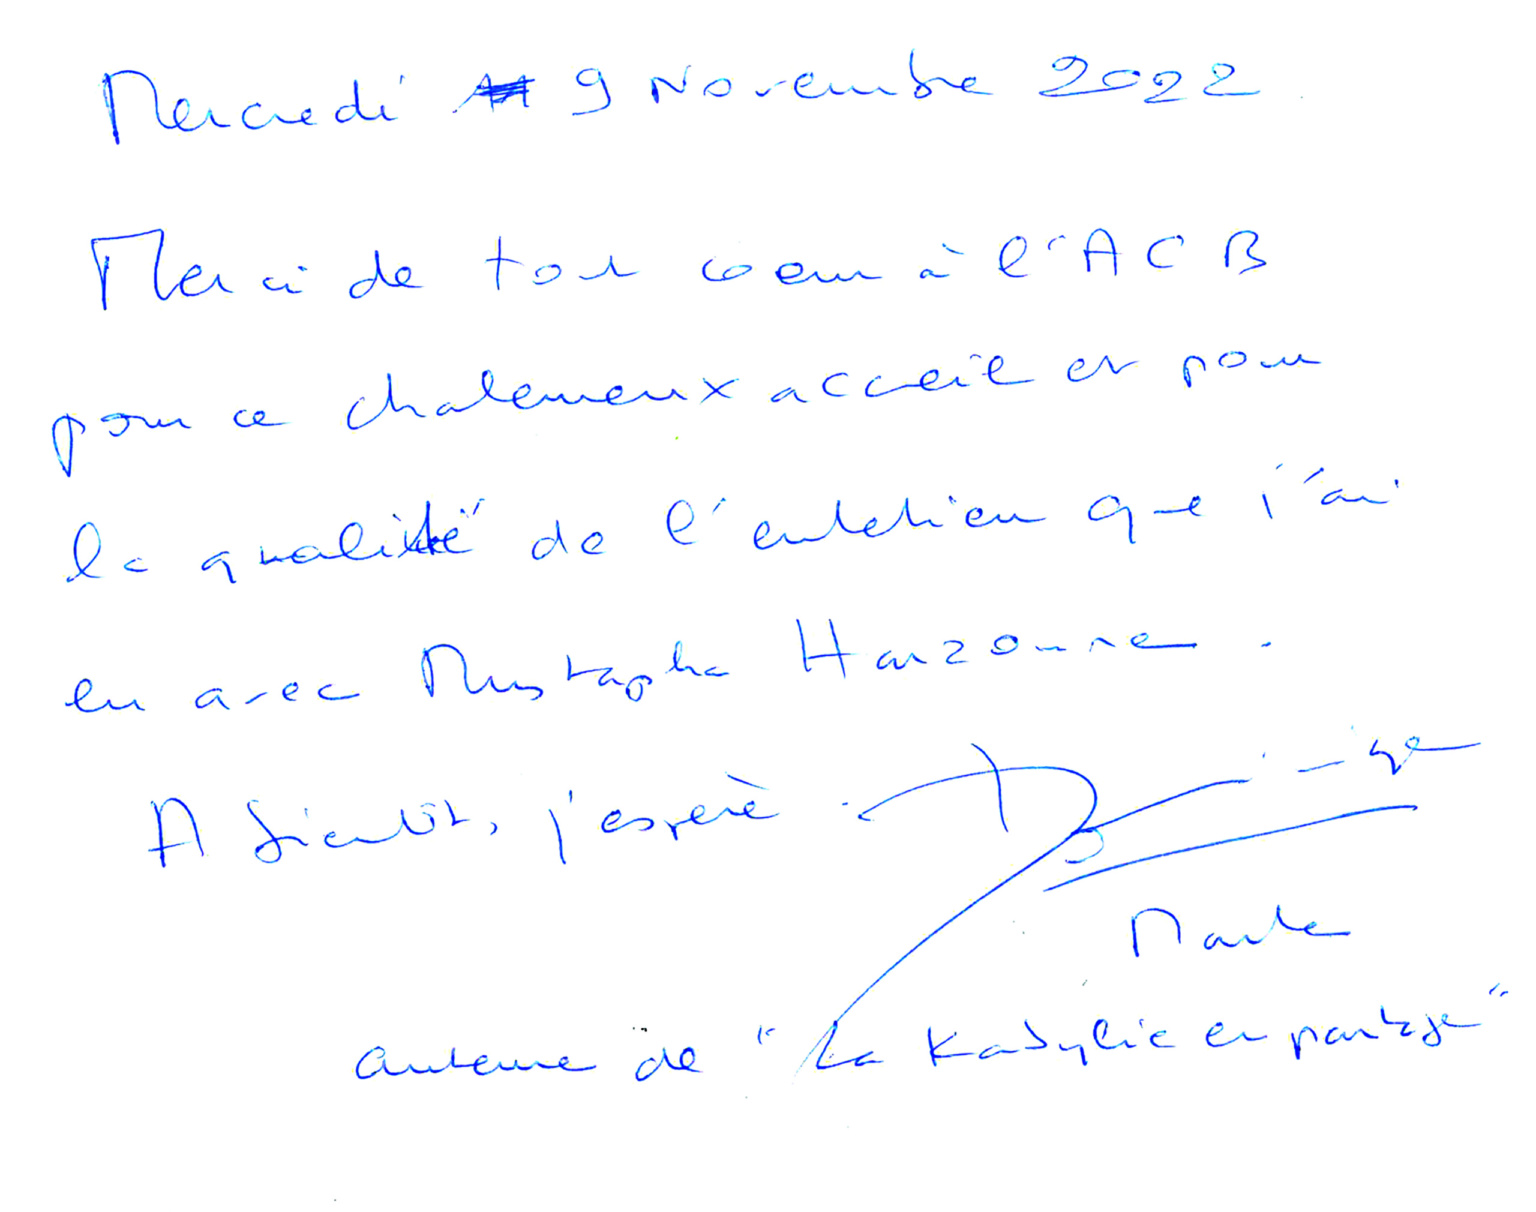 Mercredi 9 Novembre 2022
Merci de tout coeur à l'ACB
pour ce chaleureux accueil et pour
la qualité de l'entretien que j'ai
eu avec Mustapha Harzoune.
A bientôt, j'espère.
Dominique
Marte
auteure de "La Kabylie en partage"